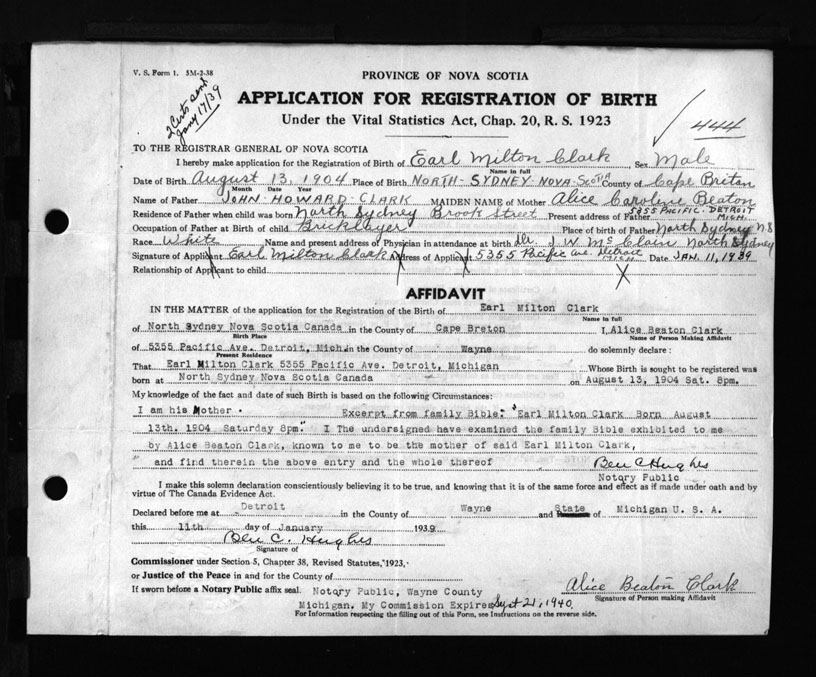 V. S. Form 1. 5M-2-38
2 Certs sent
Jany 17/39
PROVINCE OF NOVA SCOTIA
APPLICATION FOR REGISTRATION OF BIRTH
Under the Vital Statistics Act, Chap. 20, R. S. 1923
444
TO THE REGISTRAR GENERAL OF NOVA SCOTIA
I hereby make application for the Registration of Birth of Earl Milton Clark Sex Male
Name in full
Date of Birth August 13, 1904 Place of Birth NORTH-SYDNEY NOVA-SCOTIA County of Cape Briton
Month Date Year
Name of Father JOHN HOWARD CLARK MAIDEN NAME of Mother Alice Caroline Beaton
Residence of Father when child was born North Sydney Brook Street Present address of Father 5355 PACIFIC. DETROIT MICH.
Occupation of Father at Birth of child Bricklayer Place of Birth of Father North Sydney N.S
Race White Name and present address of Physician in attendance at birth Dr. J. W. Mc Clain North Sydney
Signature of Applicant Earl Milton Clark Address of Applicant 5355 Pacific Ave. Detroit MICH Date JAN. 11, 1939
Relationship of Applicant to child
AFFIDAVIT
IN THE MATTER of the application for the Registration of the Birth of Earl Milton Clark
Name in full
of North Sydney Nova Scotia Canada in the County of Cape Breton I, Alice Beaton Clark
Birth Place Name of Person Making Affidavit
of 5355 Pacific Ave. Detroit, Mich. in the County of Wayne do solemnly declare:
Present Residence
That Earl Milton Clark 5355 Pacific Ave. Detroit, Michigan Whose Birth is sought to be registered was
born at North Sydney Nova Scotia Canada on August 13, 1904 Sat. 8pm.
My knowledge of the fact and date of such Birth is based on the following Circumstances:
I am his Mother. Excerpt from family Bible: "Earl Milton Clark Born August
13th. 1904 Saturday 8pm." I The undersigned have examined the family Bible exhibited to me
by Alice Beaton Clark, known to me to be the mother of said Earl Milton Clark,
and find therein the above entry and the whole thereof Ben C Hughes
Notary Public
I make this solemn declaration conscientiously believing it to be true, and knowing that it is of the same force and effect as if made under oath and by
virtue of The Canada Evidence Act.
Declared before me at Detroit in the County of Wayne and State of Michigan U. S. A.
this 11th day of January 1939
Ben C. Hughes
Signature of
Commissioner under Section 5, Chapter 38, Revised Statutes, 1923,
or Justice of the Peace in and for the County of
If sworn before a Notary Public affix seal. Notary Public, Wayne County
Michigan. My Commission Expires Sept 21, 1940
Alice Beaton Clark
Signature of Person making Affidavit
For Information respecting the filling out of this Form, see Instructions on the reverse side.